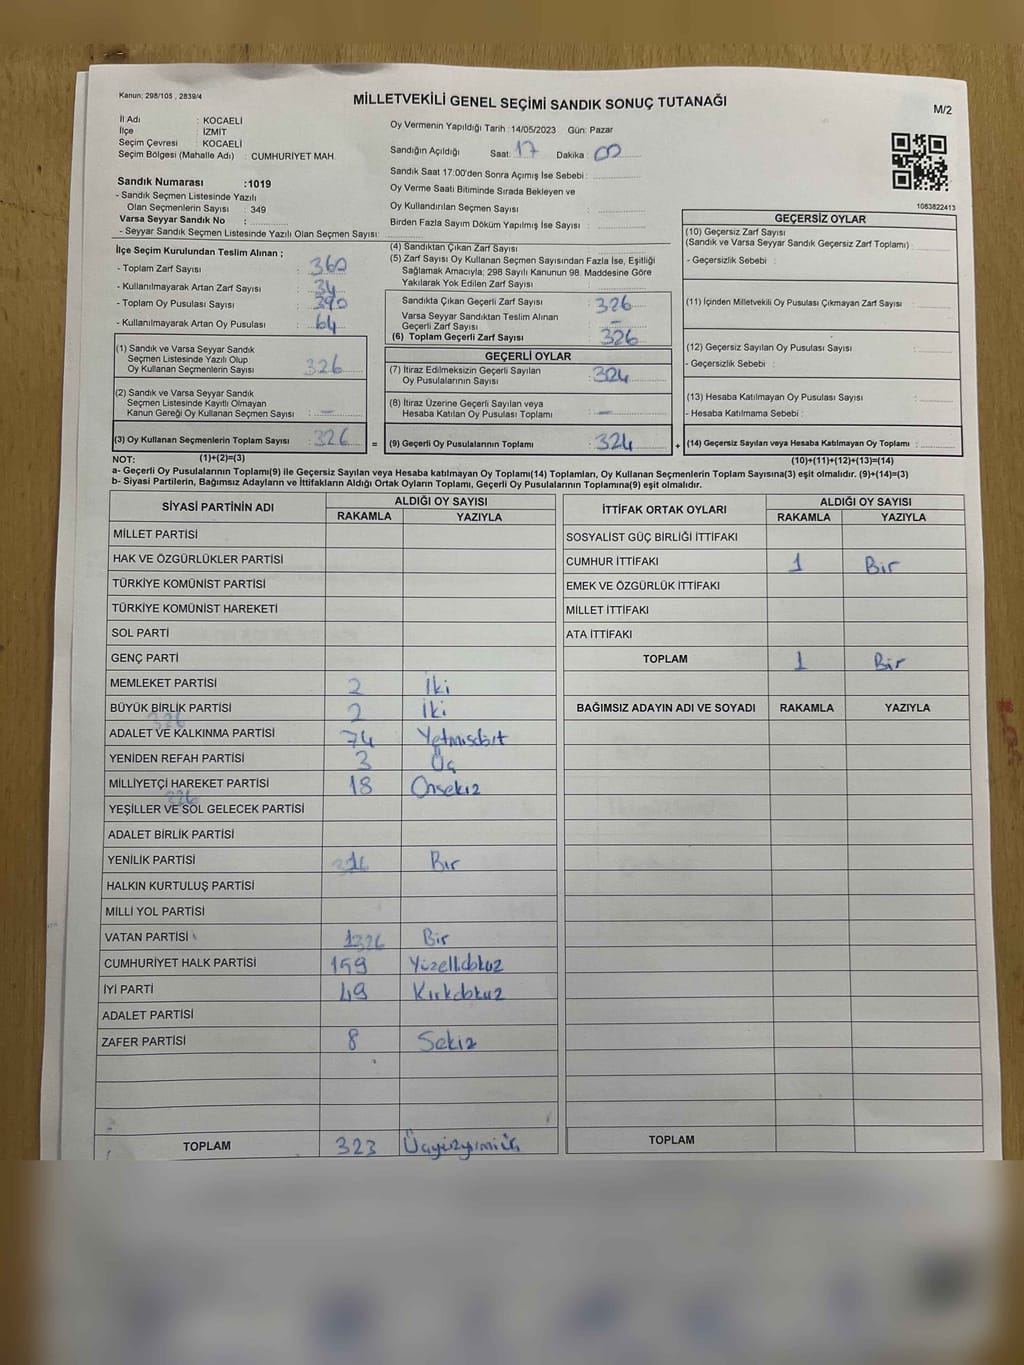 Kanun; 298/105 , 2839/4
MİLLETVEKİLİ GENEL SEÇİMİ SANDIK SONUÇ TUTANAĞI
M/2
İl Adı : KOCAELİ
İlçe : İZMİT
Seçim Çevresi : KOCAELİ
Seçim Bölgesi (Mahalle Adı) : CUMHURİYET MAH.
Sandık Numarası :1019
- Sandık Seçmen Listesinde Yazılı
Olan Seçmenlerin Sayısı : 349
Varsa Seyyar Sandık No :
- Seyyar Sandık Seçmen Listesinde Yazılı Olan Seçmen Sayısı:
Oy Vermenin Yapıldığı Tarih : 14/05/2023 Gün: Pazar
Sandığın Açıldığı Saat: 17 Dakika : 00
Sandık Saat 17.00'den Sonra Açımış İse Sebebi :
Oy Verme Saati Bitiminde Sırada Bekleyen ve
Oy Kullandırılan Seçmen Sayısı :
Birden Fazla Sayım Döküm Yapılmış İse Sayısı :
1083822413
İlçe Seçim Kurulundan Teslim Alınan ;
- Toplam Zarf Sayısı : 360
- Kullanılmayarak Artan Zarf Sayısı : 34
- Toplam Oy Pusulası Sayısı : 390
- Kullanılmayarak Artan Oy Pusulası : 64
(1) Sandık ve Varsa Seyyar Sandık
Seçmen Listesinde Yazılı Olup
Oy Kullanan Seçmenlerin Sayısı : 326
(2) Sandık ve Varsa Seyyar Sandık
Seçmen Listesinde Kayıtlı Olmayan
Kanun Gereği Oy Kullanan Seçmen Sayısı : –
(3) Oy Kullanan Seçmenlerin Toplam Sayısı : 326
(4) Sandıktan Çıkan Zarf Sayısı :
(5) Zarf Sayısı Oy Kullanan Seçmen Sayısından Fazla İse, Eşitliği
Sağlamak Amacıyla; 298 Sayılı Kanunun 98. Maddesine Göre
Yakılarak Yok Edilen Zarf Sayısı :
Sandıkta Çıkan Geçerli Zarf Sayısı : 326
Varsa Seyyar Sandıktan Teslim Alınan
Geçerli Zarf Sayısı : –
(6) Toplam Geçerli Zarf Sayısı : 326
GEÇERLİ OYLAR
(7) İtiraz Edilmeksizin Geçerli Sayılan
Oy Pusulalarının Sayısı : 324
(8) İtiraz Üzerine Geçerli Sayılan veya
Hesaba Katılan Oy Pusulası Toplamı : –
= (9) Geçerli Oy Pusulalarının Toplamı : 324
GEÇERSİZ OYLAR
(10) Geçersiz Zarf Sayısı
(Sandık ve Varsa Seyyar Sandık Geçersiz Zarf Toplamı) :
- Geçersizlik Sebebi :
(11) İçinden Milletvekili Oy Pusulası Çıkmayan Zarf Sayısı :
(12) Geçersiz Sayılan Oy Pusulası Sayısı :
- Geçersizlik Sebebi :
(13) Hesaba Katılmayan Oy Pusulası Sayısı :
- Hesaba Katılmama Sebebi :
+ (14) Geçersiz Sayılan veya Hesaba Katılmayan Oy Toplamı :
NOT: (1)+(2)=(3)
(10)+(11)+(12)+(13)=(14)
a- Geçerli Oy Pusulalarının Toplamı(9) ile Geçersiz Sayılan veya Hesaba katılmayan Oy Toplamı(14) Toplamları, Oy Kullanan Seçmenlerin Toplam Sayısına(3) eşit olmalıdır. (9)+(14)=(3)
b- Siyasi Partilerin, Bağımsız Adayların ve İttifakların Aldığı Ortak Oyların Toplamı, Geçerli Oy Pusulalarının Toplamına(9) eşit olmalıdır.
SİYASİ PARTİNİN ADI ALDIĞI OY SAYISI
RAKAMLA YAZIYLA
MİLLET PARTİSİ
HAK VE ÖZGÜRLÜKLER PARTİSİ
TÜRKİYE KOMÜNİST PARTİSİ
TÜRKİYE KOMÜNİST HAREKETİ
SOL PARTİ
GENÇ PARTİ
MEMLEKET PARTİSİ 2 İki
BÜYÜK BİRLİK PARTİSİ 2 İki
326
ADALET VE KALKINMA PARTİSİ 74 Yetmişdört
YENİDEN REFAH PARTİSİ 3 Üç
MİLLİYETÇİ HAREKET PARTİSİ 18 Onsekiz
326
YEŞİLLER VE SOL GELECEK PARTİSİ
ADALET BİRLİK PARTİSİ
YENİLİK PARTİSİ Bir
HALKIN KURTULUŞ PARTİSİ
MİLLİ YOL PARTİSİ
VATAN PARTİSİ 1326 Bir
CUMHURİYET HALK PARTİSİ 159 Yüzellidokuz
İYİ PARTİ 49 Kırkdokuz
ADALET PARTİSİ
ZAFER PARTİSİ 8 Sekiz
TOPLAM 323 Üçyüzyirmiüç
İTTİFAK ORTAK OYLARI ALDIĞI OY SAYISI
RAKAMLA YAZIYLA
SOSYALİST GÜÇ BİRLİĞİ İTTİFAKI
CUMHUR İTTİFAKI 1 Bir
EMEK VE ÖZGÜRLÜK İTTİFAKI
MİLLET İTTİFAKI
ATA İTTİFAKI
TOPLAM 1 Bir
BAĞIMSIZ ADAYIN ADI VE SOYADI RAKAMLA YAZIYLA
TOPLAM